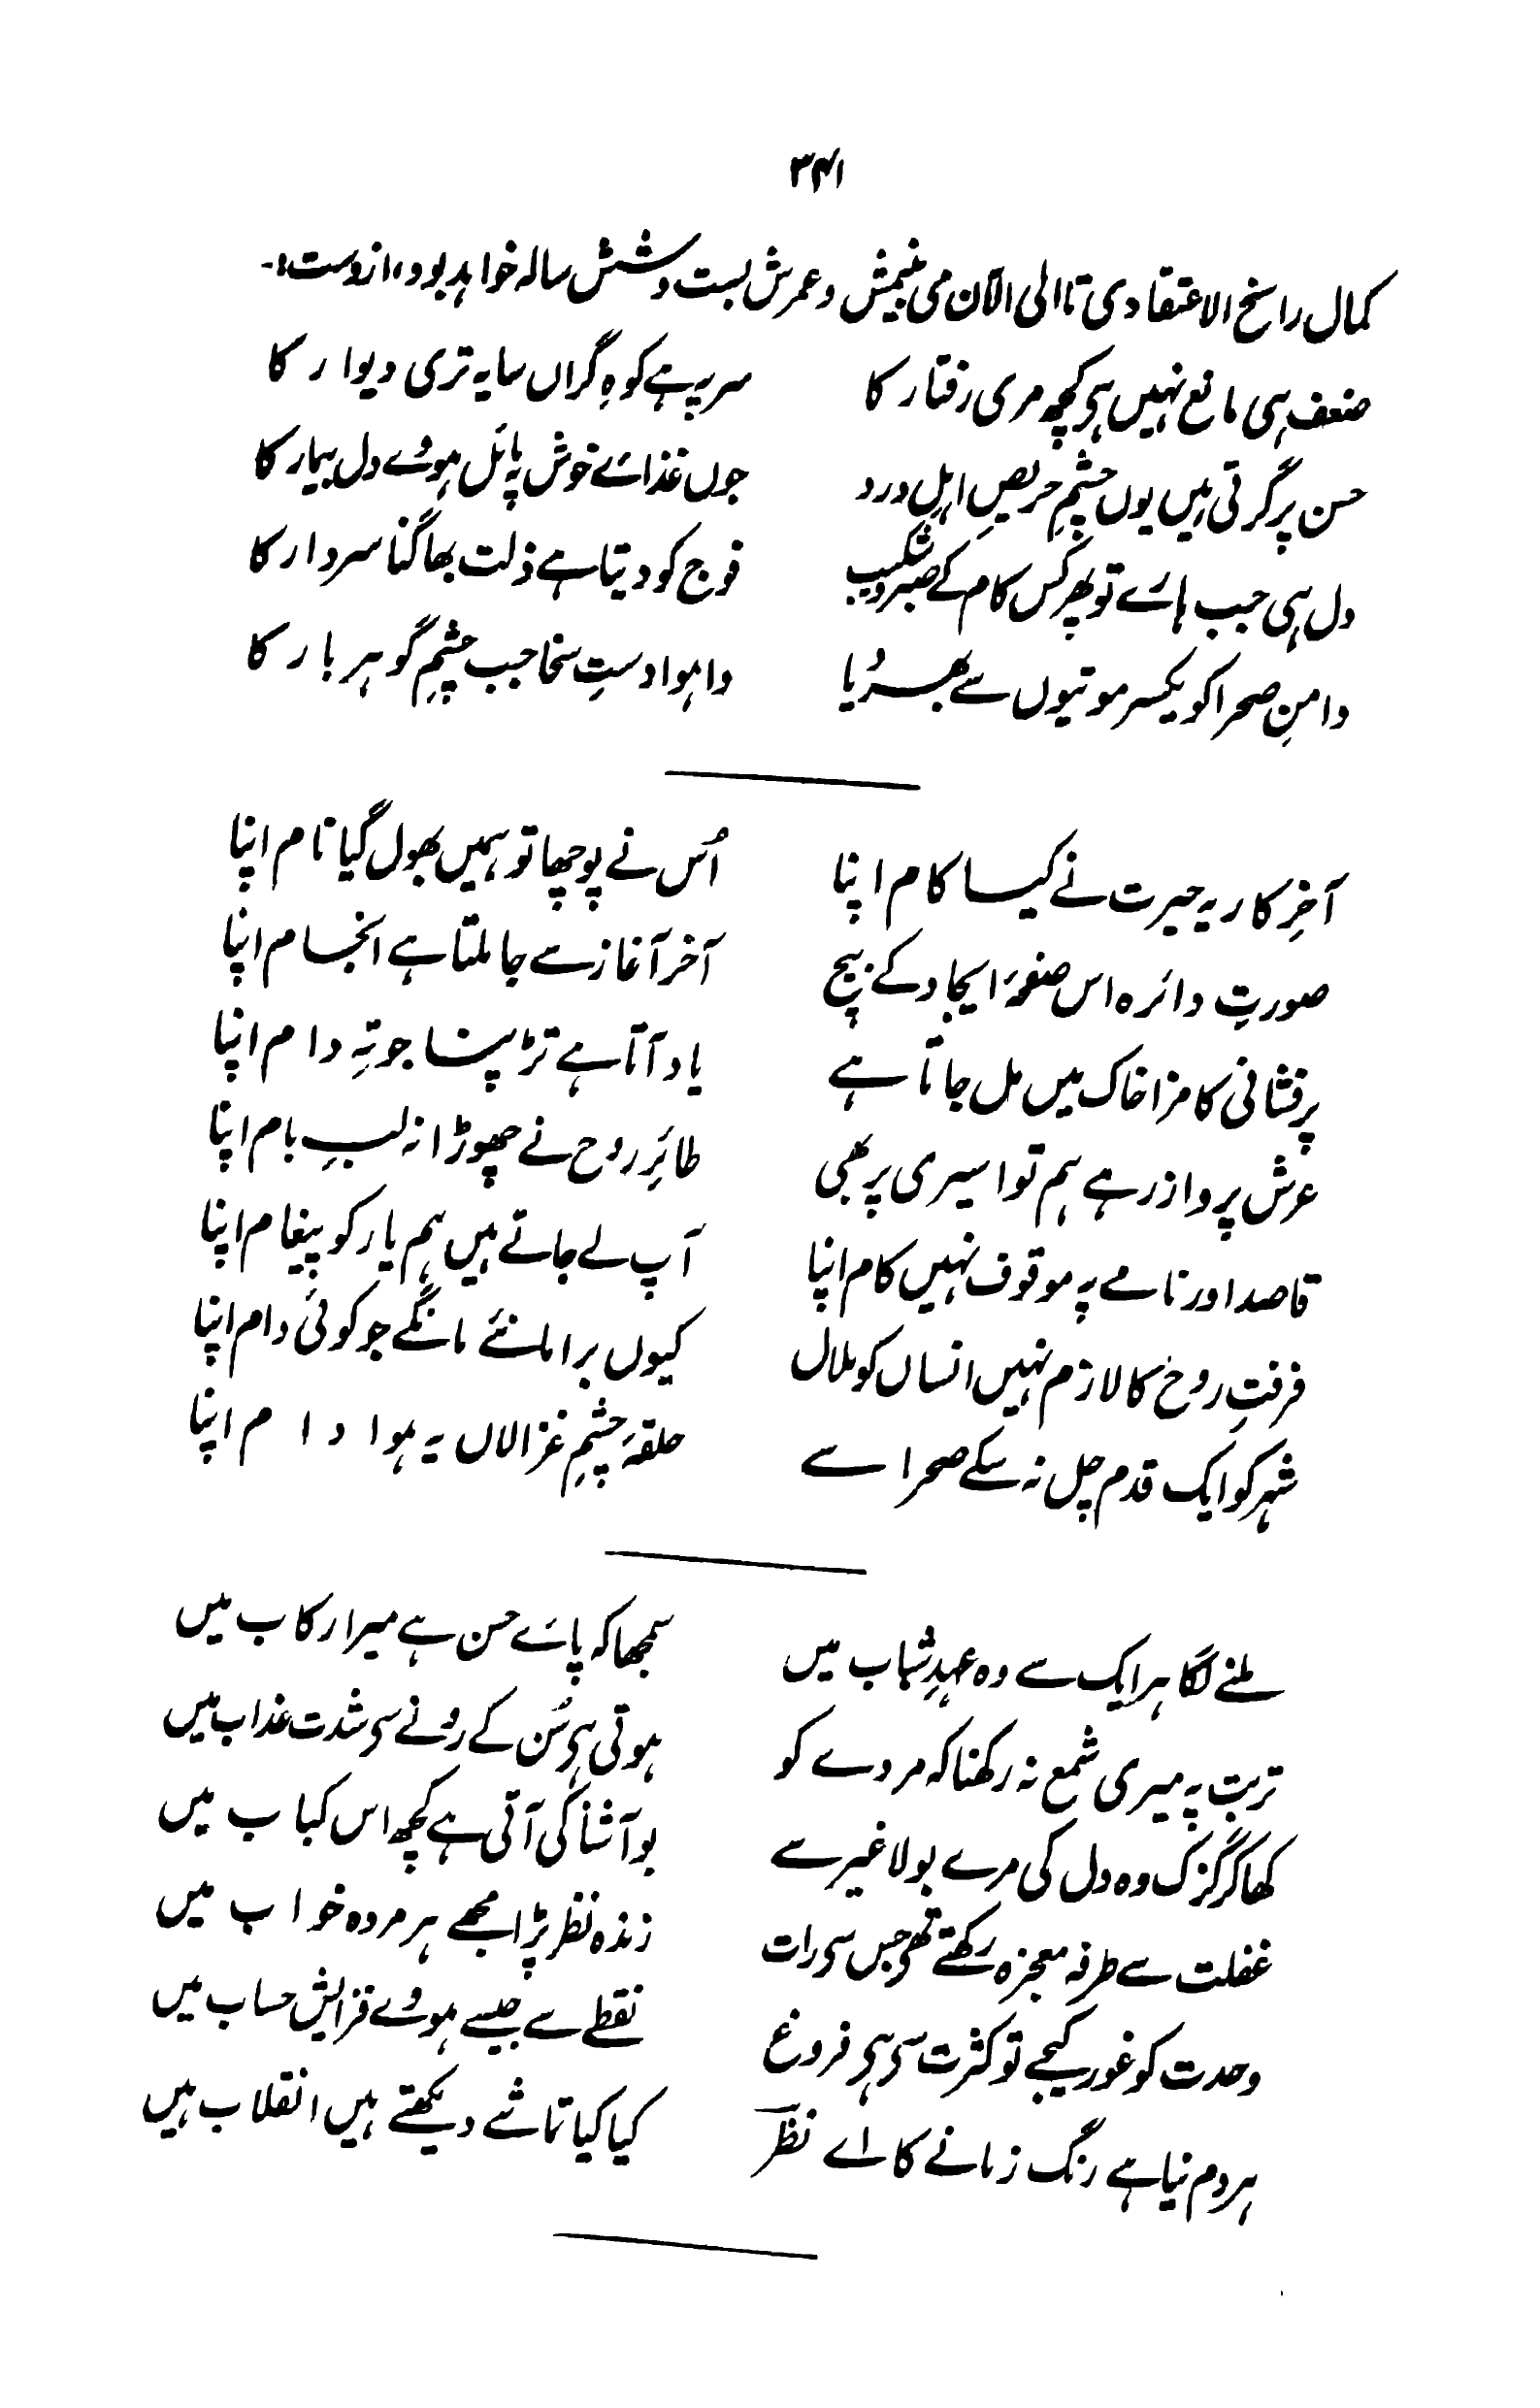 ۳۴۱
کمال راسخ الاعتقادی تا الی الآن می بینمش و عمرش بست و شش سالہ خواہد بود، ازوست:-
ضعف ہی مانع نہیں ہی کچھ مری رفتار کا سر پہ ہے کوہِ گراں سایہ تری دیوار کا
حسن پر گرتی ہیں یوں چشمِ حریصِ اہلِ درد جوں غذائے خوش پہ مائل ہووے دل بیمار کا
دل ہی جب ہارے تو پھر کس کام کے صبر و شکیب فوج کو دیتا ہے ذلت بھاگنا سردار کا
دامنِ صحرا کو یکسر موتیوں سے بھر دیا وا ہوا دستِ سخا جب چشمِ گوہر بار کا
آخرِ کار یہ حیرت نے کیا کام اپنا اُس نے پوچھا تو ہمیں بھول گیا نام اپنا
صورتِ دائرہ اس صفحۂ ایجاد کے بیچ آخر آغاز سے جا ملتا ہے انجام اپنا
پرفشانی کا مزا خاک میں مل جاتا ہے یاد آتا ہے تڑپنا جو تہِ دام اپنا
عرش پرواز رہے ہم تو اسیری پر بھی طائرِ روح نے چھوڑا نہ لبِ بام اپنا
قاصد اور نامے پہ موقوف نہیں کام اپنا آپ لے جاتے ہیں ہم یار کو پیغام اپنا
فرقتِ روح کا لازم نہیں انساں کو ملال کیوں برا مانئے مانگے جو کوئی دام اپنا
شہر کو ایک قدم چل نہ سکے صحرا سے حلقۂ چشمِ غزالاں یہ ہوا دام اپنا
ملنے لگا ہر ایک سے وہ عہدِ شباب میں سمجھا کہ پائے حسن ہے میرا رکاب میں
تربت پہ میری شمع نہ رکھنا کہ مردے کو ہوتی ہی سُن کے رونے سی شدت عذاب میں
کھا کر گزک وہ دل کی مرے بولا غیر سے بو آشنا کی آتی ہے کچھ اس کباب میں
غفلت سے طرفہ معجزہ رکھتے تھی جس سی رات زندہ نظر پڑا مجھے ہر مردہ خواب میں
وحدت کو غور کیجے تو کثرت سی ہی فروغ نقطے سے جیسے ہووے فزایش حساب میں
ہر دم نیا ہے رنگ زمانے کا اے نظرؔ کیا کیا تماشے دیکھتے ہیں انقلاب ہیں